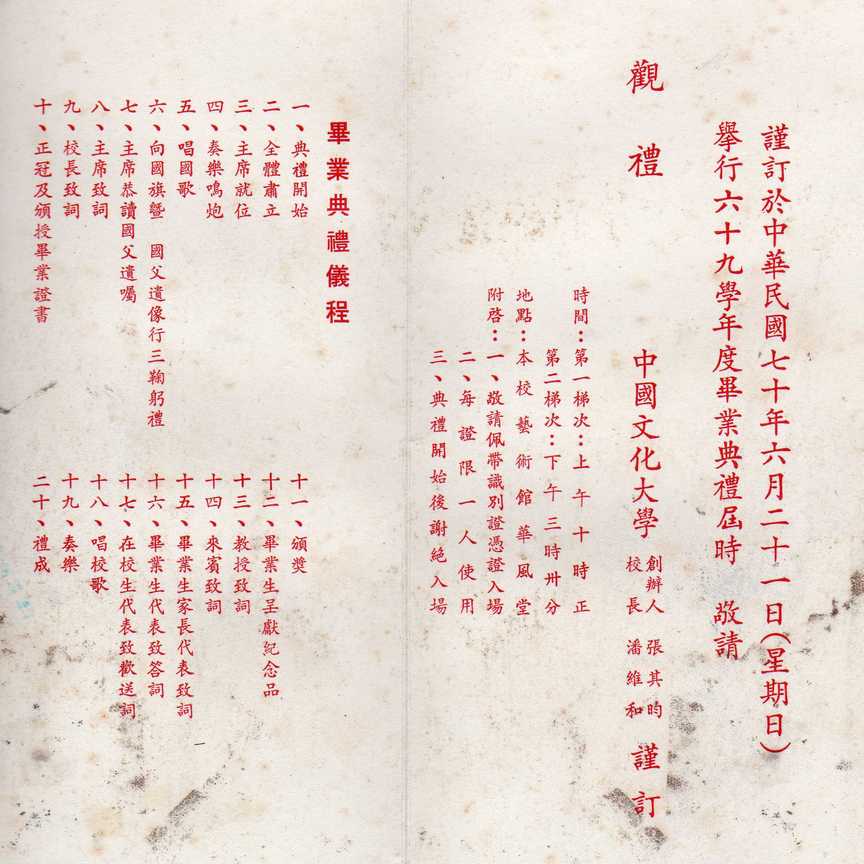 謹訂於中華民國七十年六月二十一日(星期日)
舉行六十九學年度畢業典禮屆時　敬請
觀禮
中國文化大學　創辦人　張其昀
校長　潘維和
謹訂
時間：第一梯次：上午十時正
第二梯次：下午三時卅分
地點：本校藝術館華風堂
附啓：一、敬請佩帶識別證憑證入場
二、每證限一人使用
三、典禮開始後謝絕入場
畢業典禮儀程
一、典禮開始
二、全體肅立
三、主席就位
四、奏樂鳴炮
五、唱國歌
六、向國旗暨　國父遺像行三鞠躬禮
七、主席恭讀國父遺囑
八、主席致詞
九、校長致詞
十、正冠及頒授畢業證書
十一、頒獎
十二、畢業生呈獻紀念品
十三、教授致詞
十四、來賓致詞
十五、畢業生家長代表致詞
十六、畢業生代表致答詞
十七、在校生代表致歡送詞
十八、唱校歌
十九、奏樂
二十、禮成